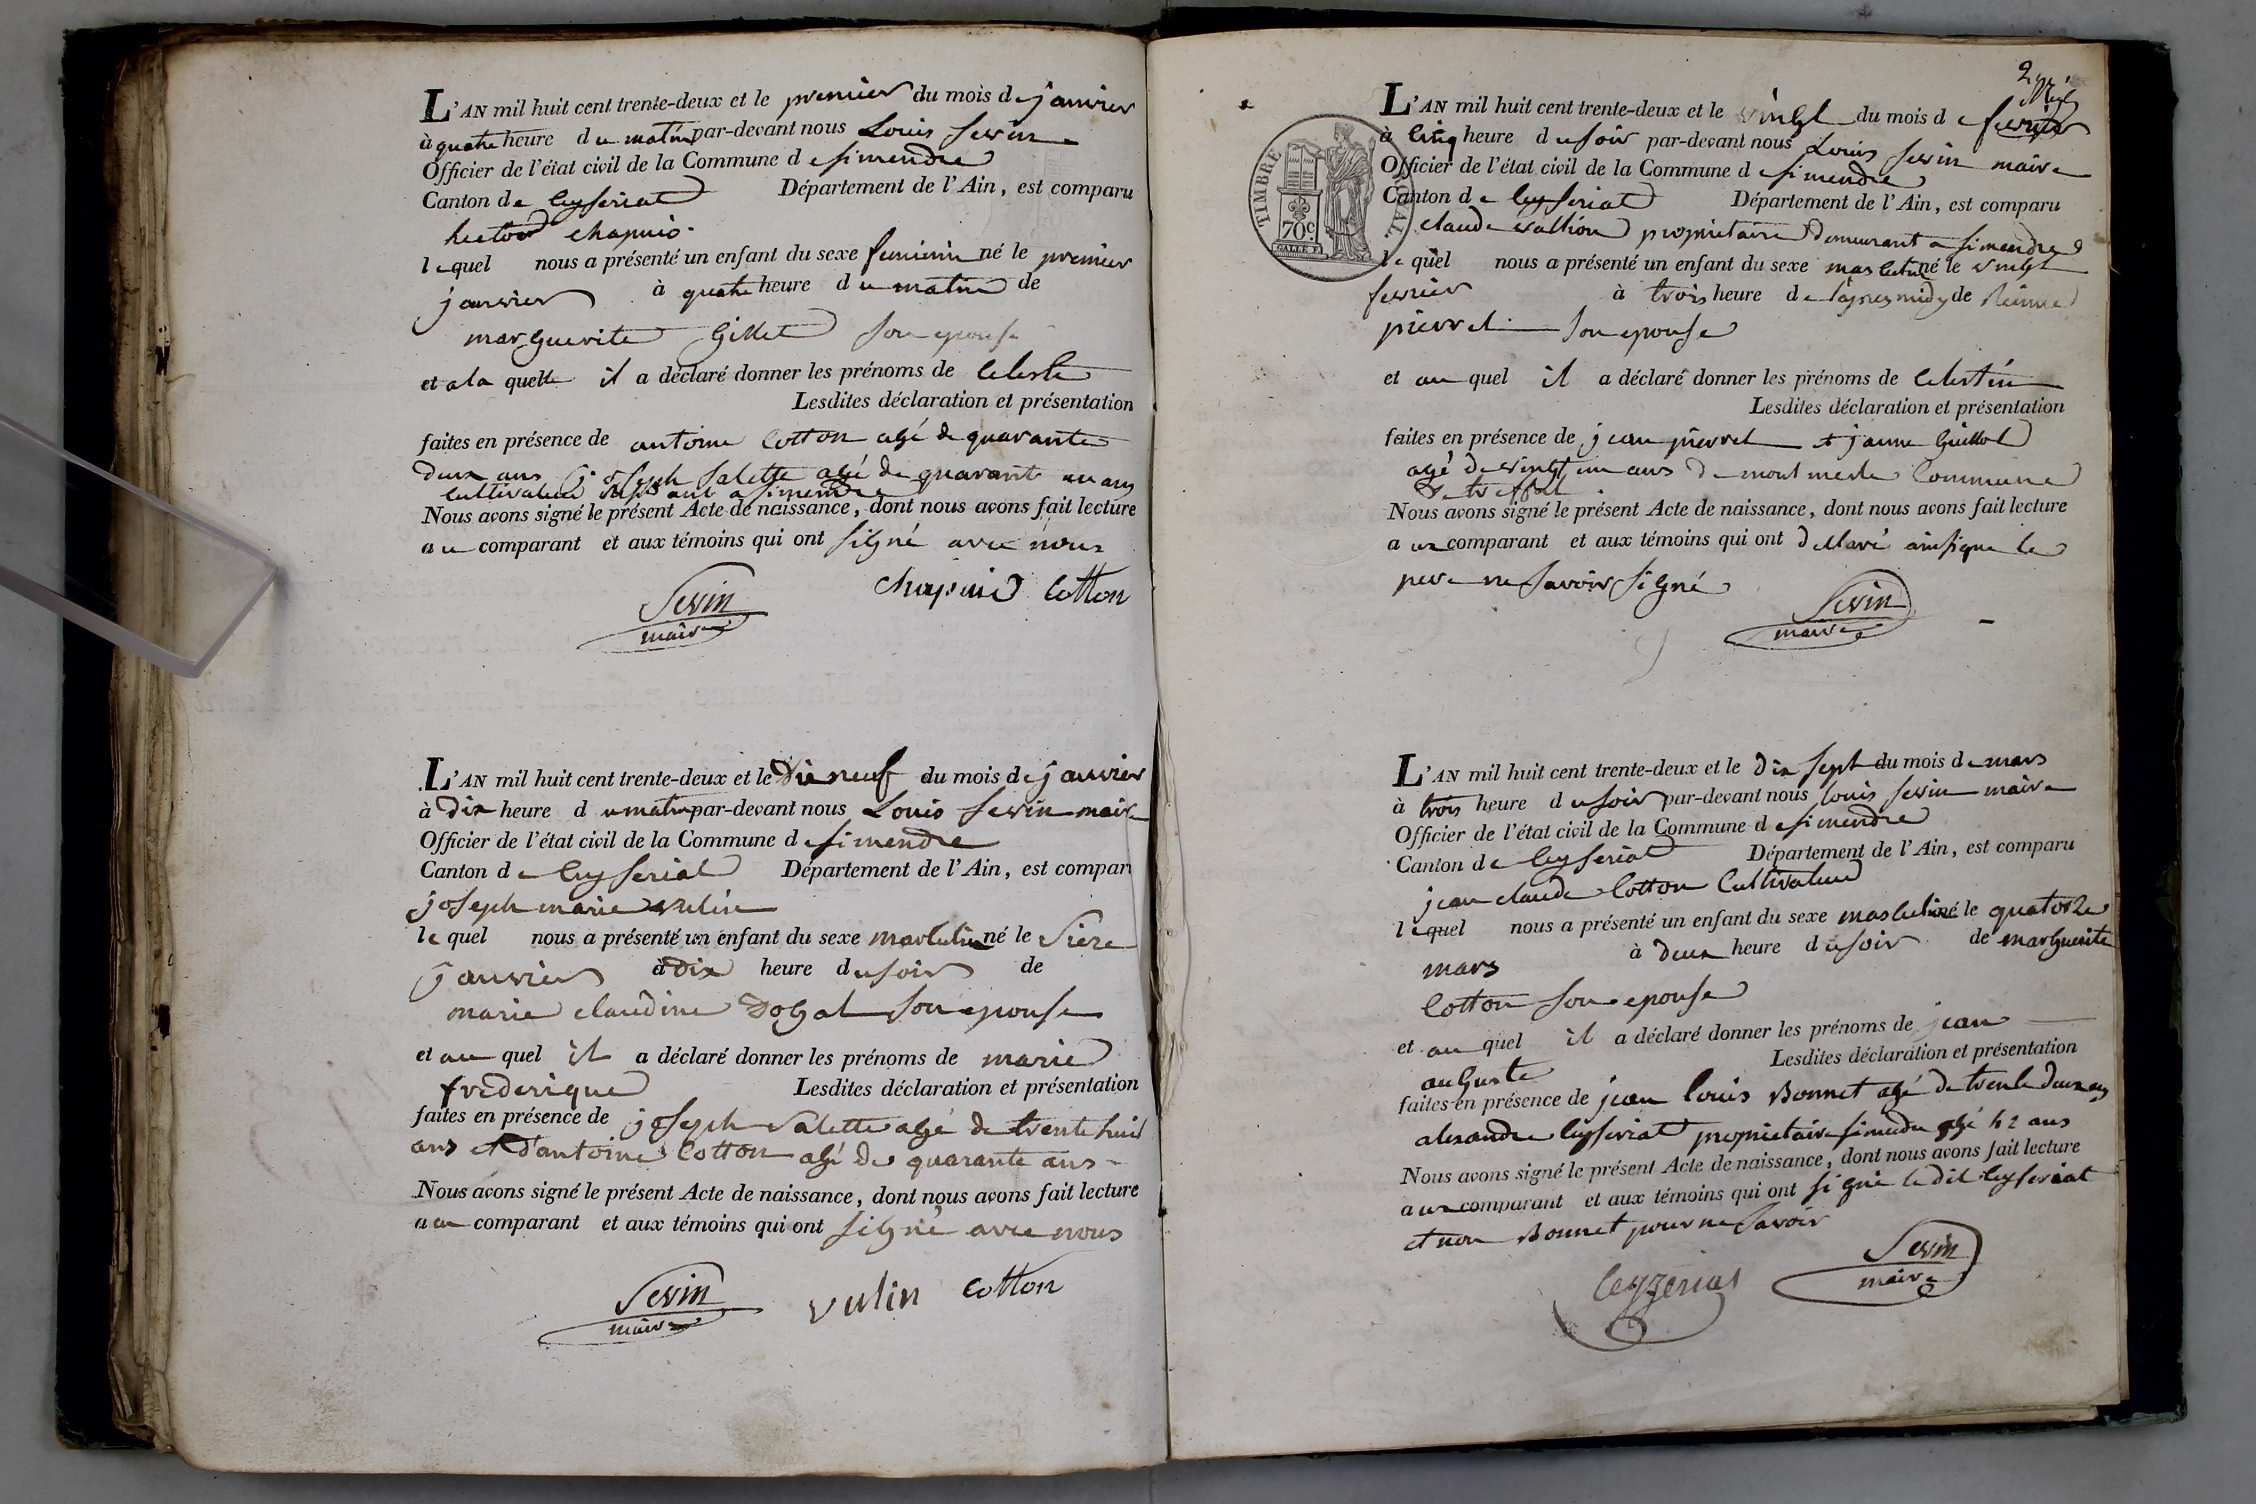 L'AN mil huit cent trente-deux et le premier du mois de janvier
à quatre heure du matin par-devant nous Louis Sevin
Officier de l'état civil de la Commune de simendre
Canton de Ceyseriat Département de l'Ain, est comparu
hector chapuis
lequel nous a présenté un enfant du sexe feminin né le premier
janvier à quatre heure du matin de
marguerite Gillet son epouse
et a la quelle il a déclaré donner les prénoms de Celeste
Lesdites déclaration et présentation
faites en présence de antoine Cotton agé de quarante
deux ans joseph Salette agé de quarant un ans
cultivateur a simendre
Nous avons signé le présent Acte de naissance, dont nous avons fait lecture
au comparant et aux témoins qui ont signé avec nous
chapuis Cotton
Sevin
maire
L'AN mil huit cent trente-deux et le Dix neuf du mois de janvier
à Dix heure du matin par-devant nous Louis Sevin maire
Officier de l'état civil de la Commune de simendre
Canton de Ceyseriat Département de l'Ain, est compar
joseph marie vulin
lequel nous a présenté un enfant du sexe masculin né le
janvier à Dix heure du soir de
marie claudine son epouse
et au quel il a déclaré donner les prénoms de marie
frederique Lesdites déclaration et présentation
faites en présence de joseph Salette agé de trente huit
ans et d'antoine Cotton agé de quarante ans
Nous avons signé le présent Acte de naissance, dont nous avons fait lecture
au comparant et aux témoins qui ont signé avec nous
Sevin vulin Cotton
maire
2
TIMBRE ROYAL
70c.
L'AN mil huit cent trente-deux et le vingt du mois de fevrier
à Cinq heure du soir par-devant nous Louis Sevin maire
Officier de l'état civil de la Commune de simendre
Canton de Ceyseriat Département de l'Ain, est comparu
claude vallion propriétaire demeurant a simendre
lequel nous a présenté un enfant du sexe masculin né le vingt
fevrier à trois heure de l'apres midy de
pierrel son epouse
et au quel il a déclaré donner les prénoms de Celestin
Lesdites déclaration et présentation
faites en présence de jean pierrel et Guillot
agé de vingt un ans de mont merle Commune
de treffort
Nous avons signé le présent Acte de naissance, dont nous avons fait lecture
aux comparant et aux témoins qui ont declaré ainsi que le
pere ne savoir signé
Sevin
maire
L'AN mil huit cent trente-deux et le dix sept du mois de mars
à trois heure du soir par-devant nous louis Sevin maire
Officier de l'état civil de la Commune de simendre
Canton de Ceyseriat Département de l'Ain, est comparu
jean claude Cotton Cultivateur
lequel nous a présenté un enfant du sexe masculin né le quatorze
mars à deux heure du soir de marguerite
Cotton son epouse
et au quel il a déclaré donner les prénoms de jean
auguste Lesdites déclaration et présentation
faites en présence de jean louis Bonnet agé de trente deux ans
alexandre Ceyseriat propriétaire simendre agé 42 ans
Nous avons signé le présent Acte de naissance, dont nous avons fait lecture
aux comparant et aux témoins qui ont signé le dit Ceyseriat
et non Bonnet pour ne savoir
Sevin
maire
Ceyzeriat